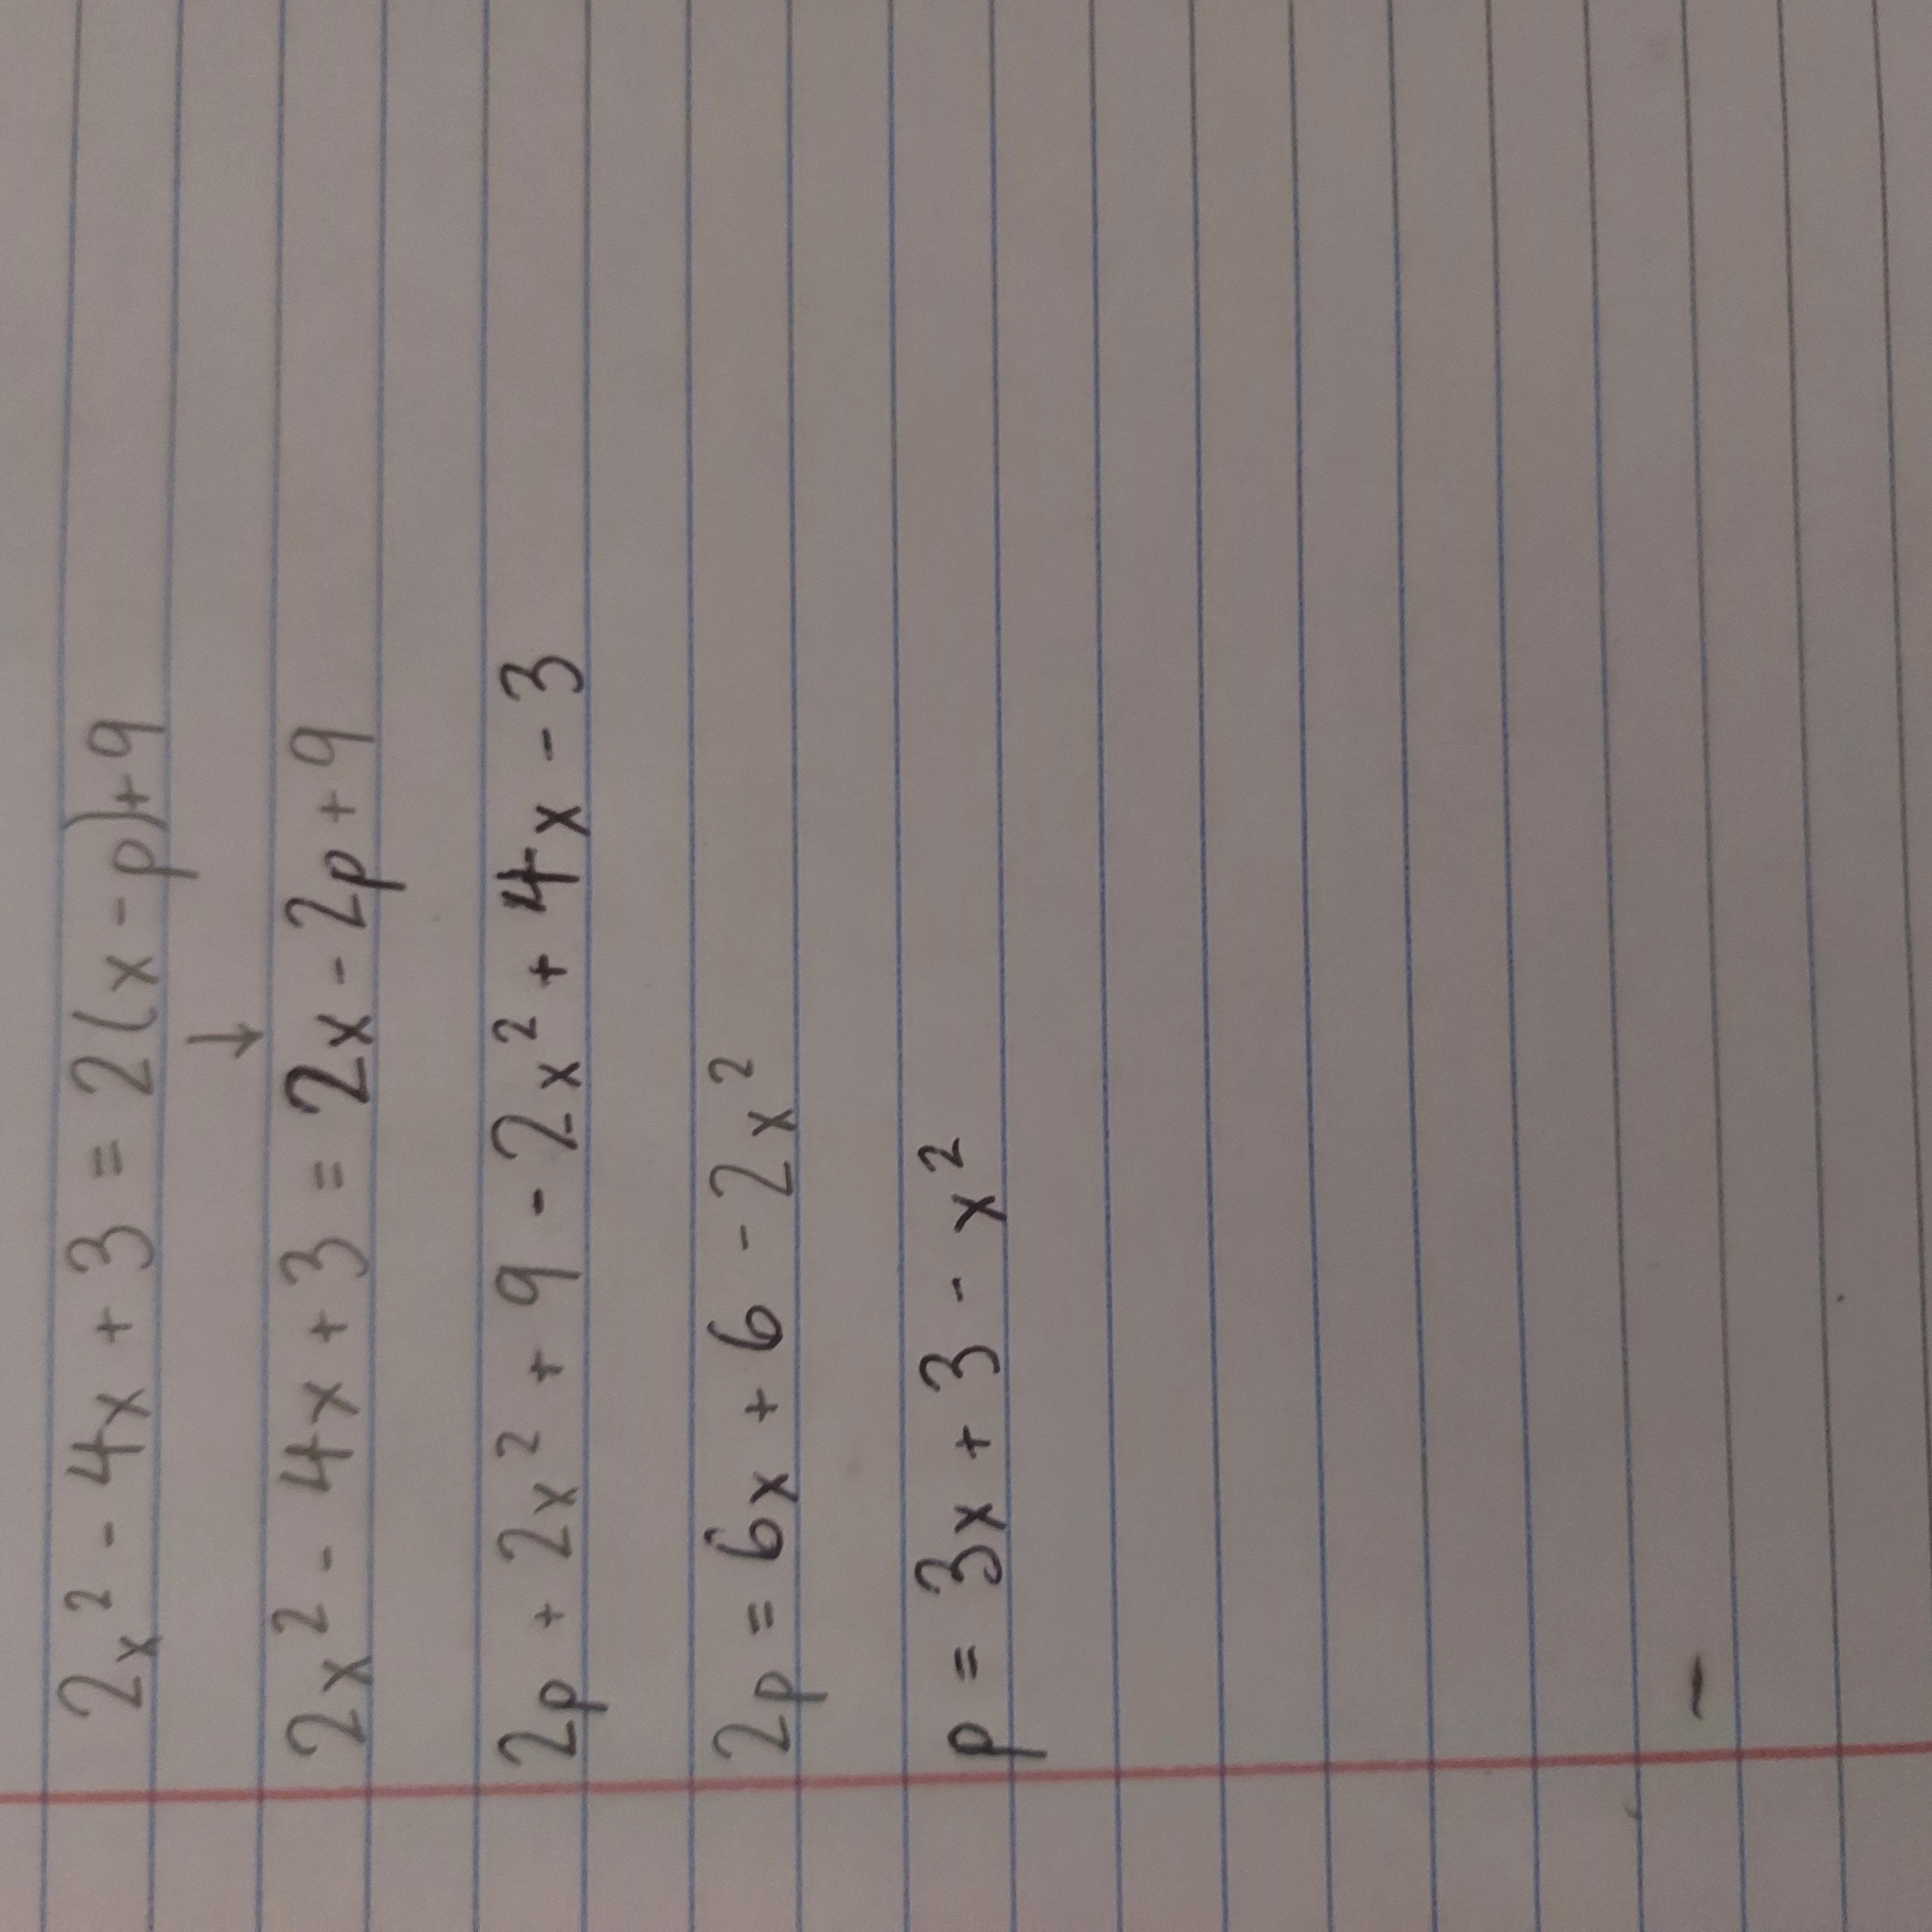 2x² - 4x + 3 = 2(x - p) + 9
↓
2x² - 4x + 3 = 2x - 2p + 9
2p + 2x² + 9 - 2x² + 4x - 3
2p = 6x + 6 - 2x²
p = 3x + 3 - x²